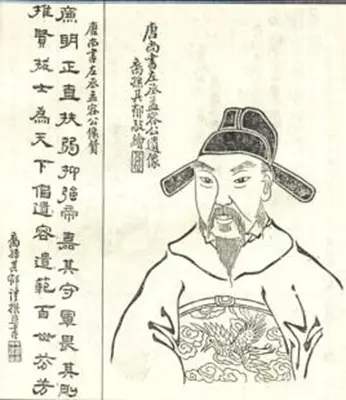 唐尚書左丞孟容公遺像
裔孫其郁敬繪
唐尚書左丞孟容公像贊
廉明正直扶弱抑強帝嘉其守軍畏其剛
推賢拔士為天下倡遺容遺範百世芬芳
裔孫其郁謹撰書